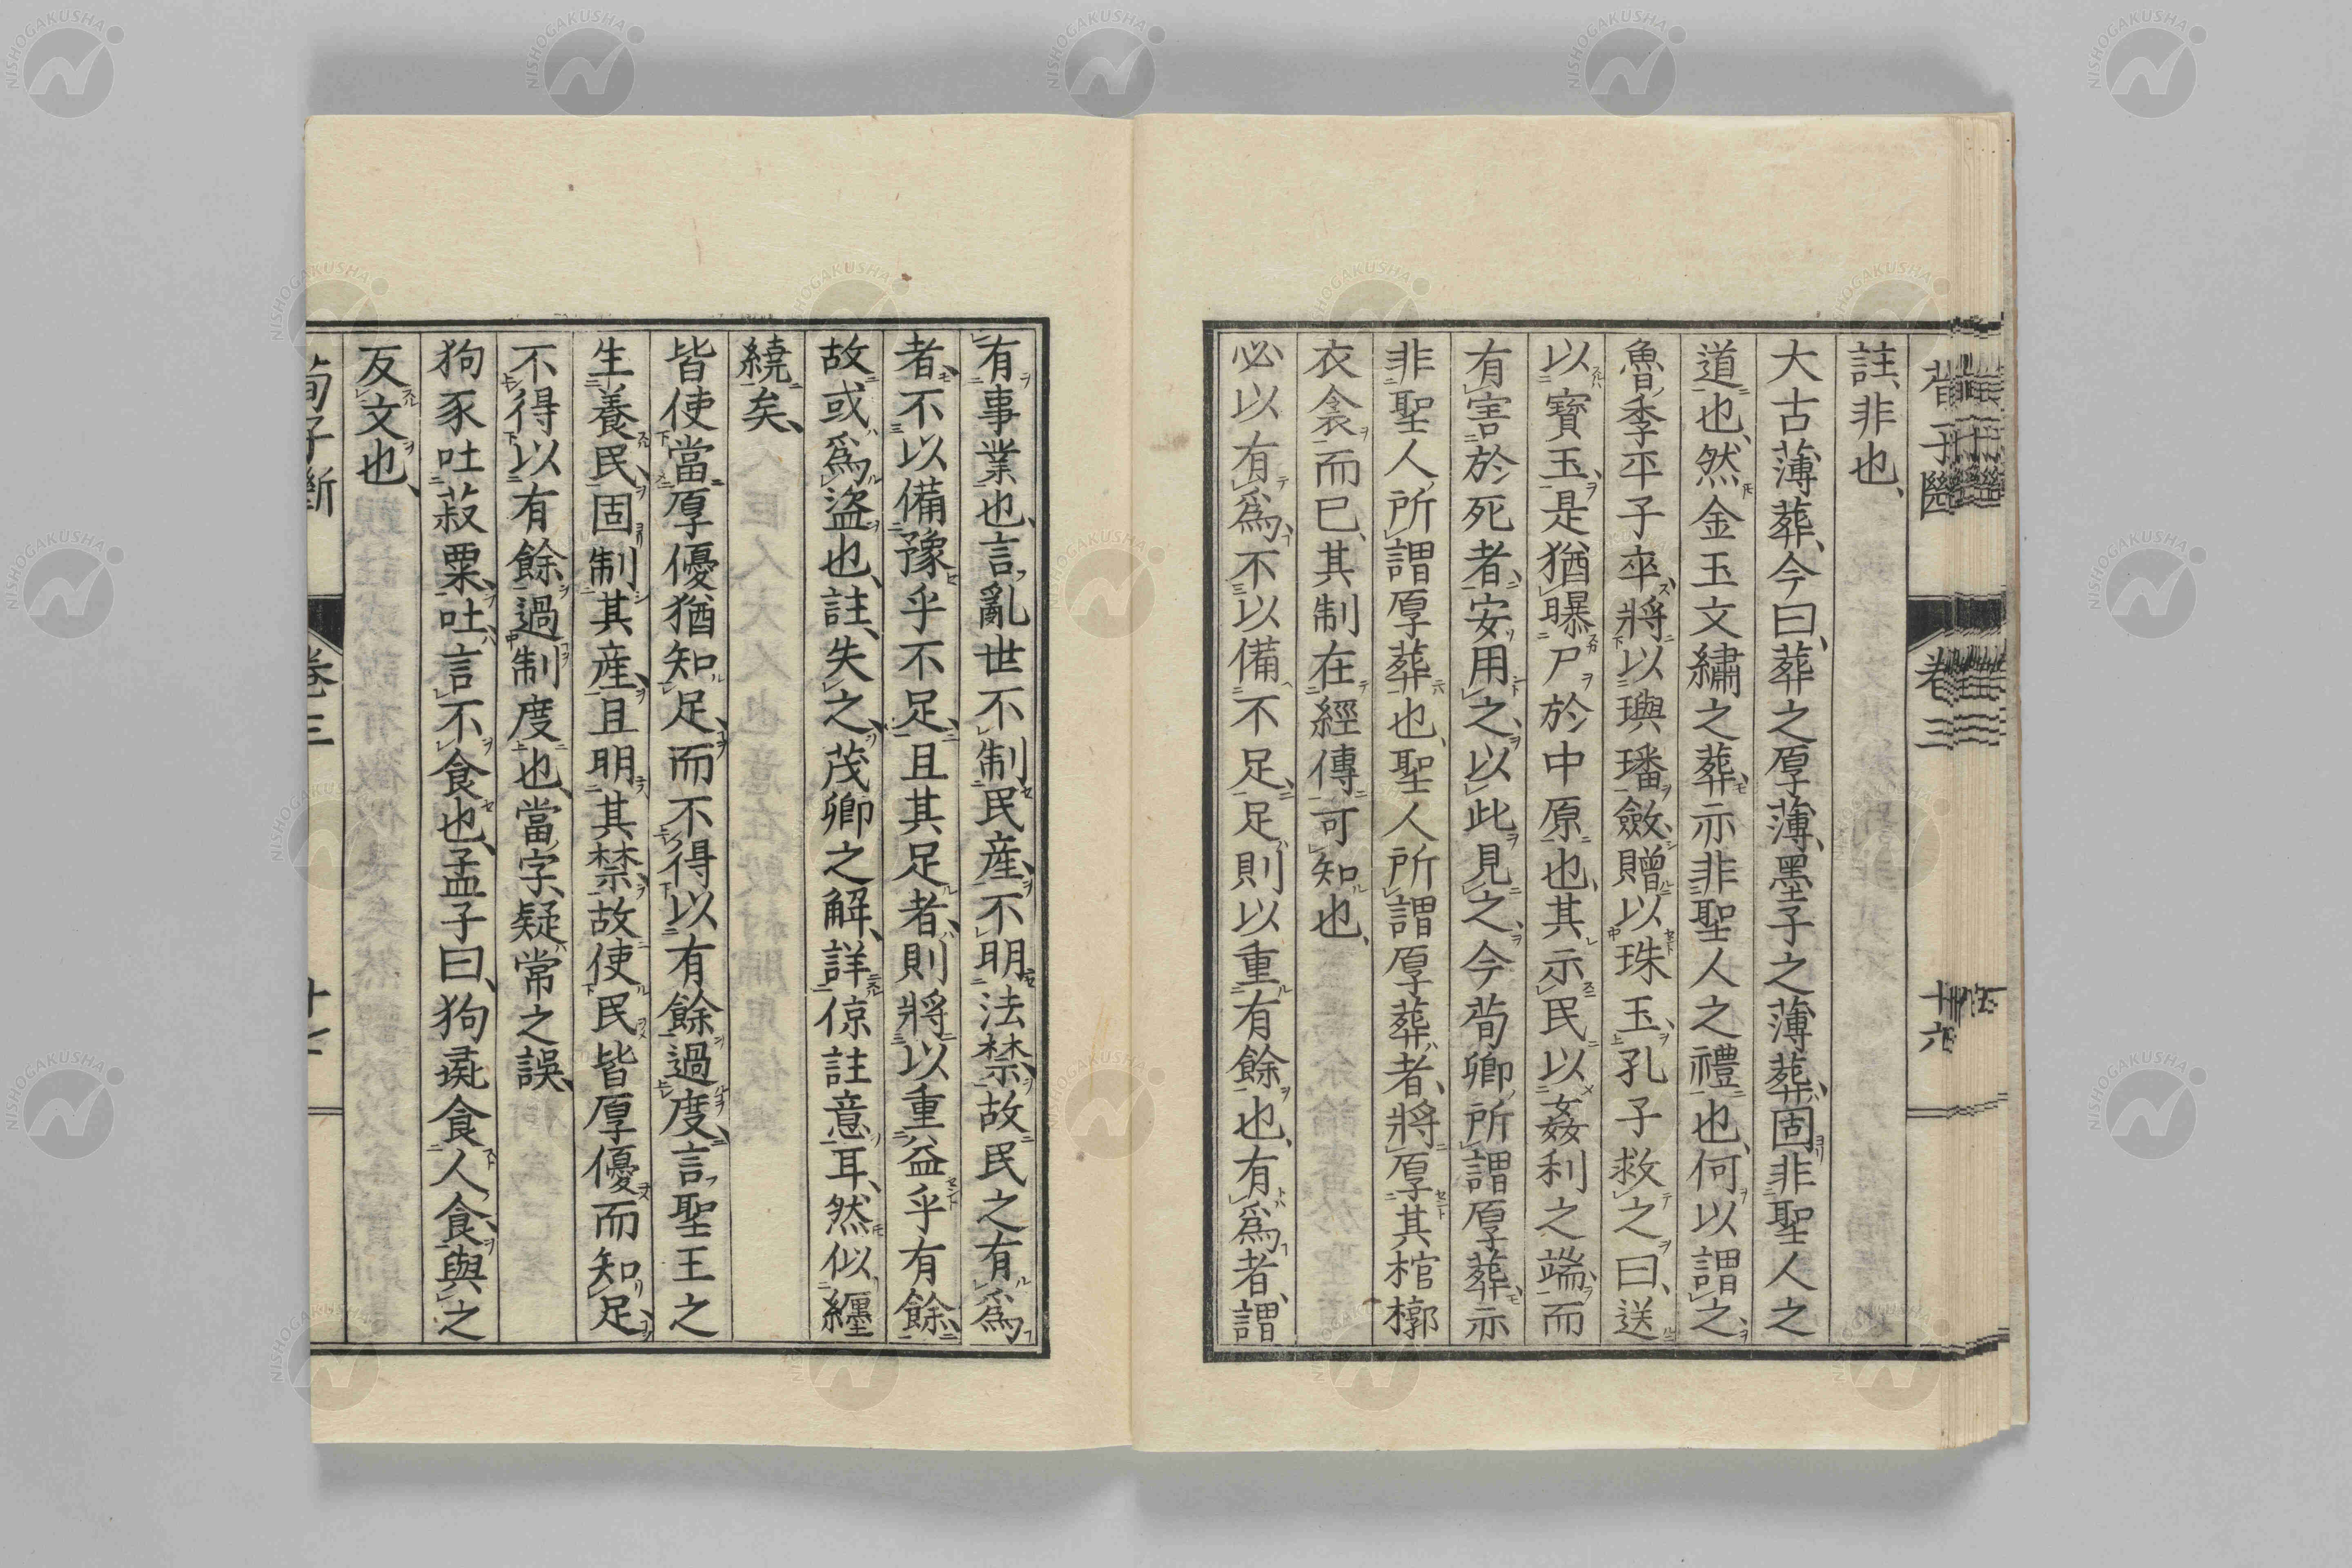 註、非也、
大古薄葬、今曰、葬之厚薄、墨子之薄葬、固非聖人之
道也、然金玉文繡之葬、亦非聖人之禮也、何以謂之、
魯季平子卒、將以璵璠斂、贈以珠玉、孔子救之曰、送
以寶玉、是猶曝尸於中原也、其示民以姦利之端、而
有害於死者、安用之、以此見之、今荀卿所謂厚葬、亦
非聖人所謂厚葬也、聖人所謂厚葬者、將厚其棺槨
衣衾而已、其制在經傳、可知也、
必以有爲、不以備不足、足則以重有餘也、有爲者、謂
有事業也、言亂世不制民產、不明法禁、故民之有爲
者、不以備豫乎不足、且其足者、則將以重益乎有餘、
故或爲盜也、註、失之、茂卿之解、詳倞註意耳、然似纒
繞矣、
皆使當厚優猶知足、而不得以有餘過度、言聖王之
生養民、固制其產、且明其禁、故使民皆厚優而知足、
不得以有餘過制度也、當字、疑常之誤、
狗豕吐菽粟、吐、言不食也、孟子曰、狗彘食人食、與之
反文也、
荀子斷
卷三
十六
荀子斷
卷三
十七
NISHOGAKUSHA